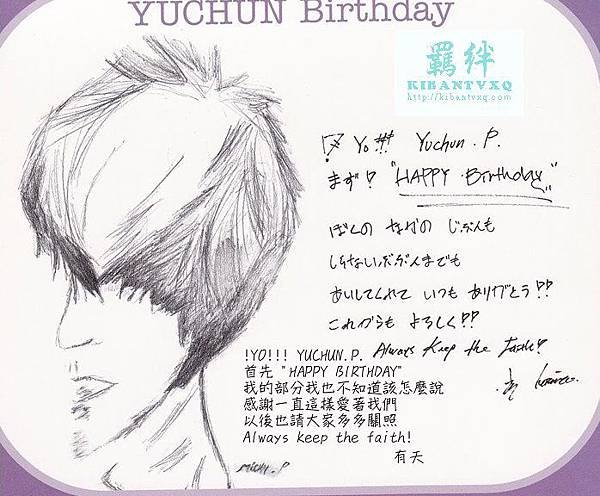 YUCHUN Birthday
羈絆
KIBANTVXQ
http://kibantvxq.com
Yo!!! Yuchun.P.
まず!? "HAPPY Birthday"
ぼくの なかの じぶんも
しらないぶぶんまでも
あいしてくれて いつも ありがとう!!
これからも よろしく!!
Always Keep the Faith!
!YO!!! YUCHUN.P.
首先 "HAPPY BIRTHDAY"
我的部分我也不知道該怎麼說
感謝一直這樣愛著我們
以後也請大家多多關照
Always keep the faith!
有天
micky.P